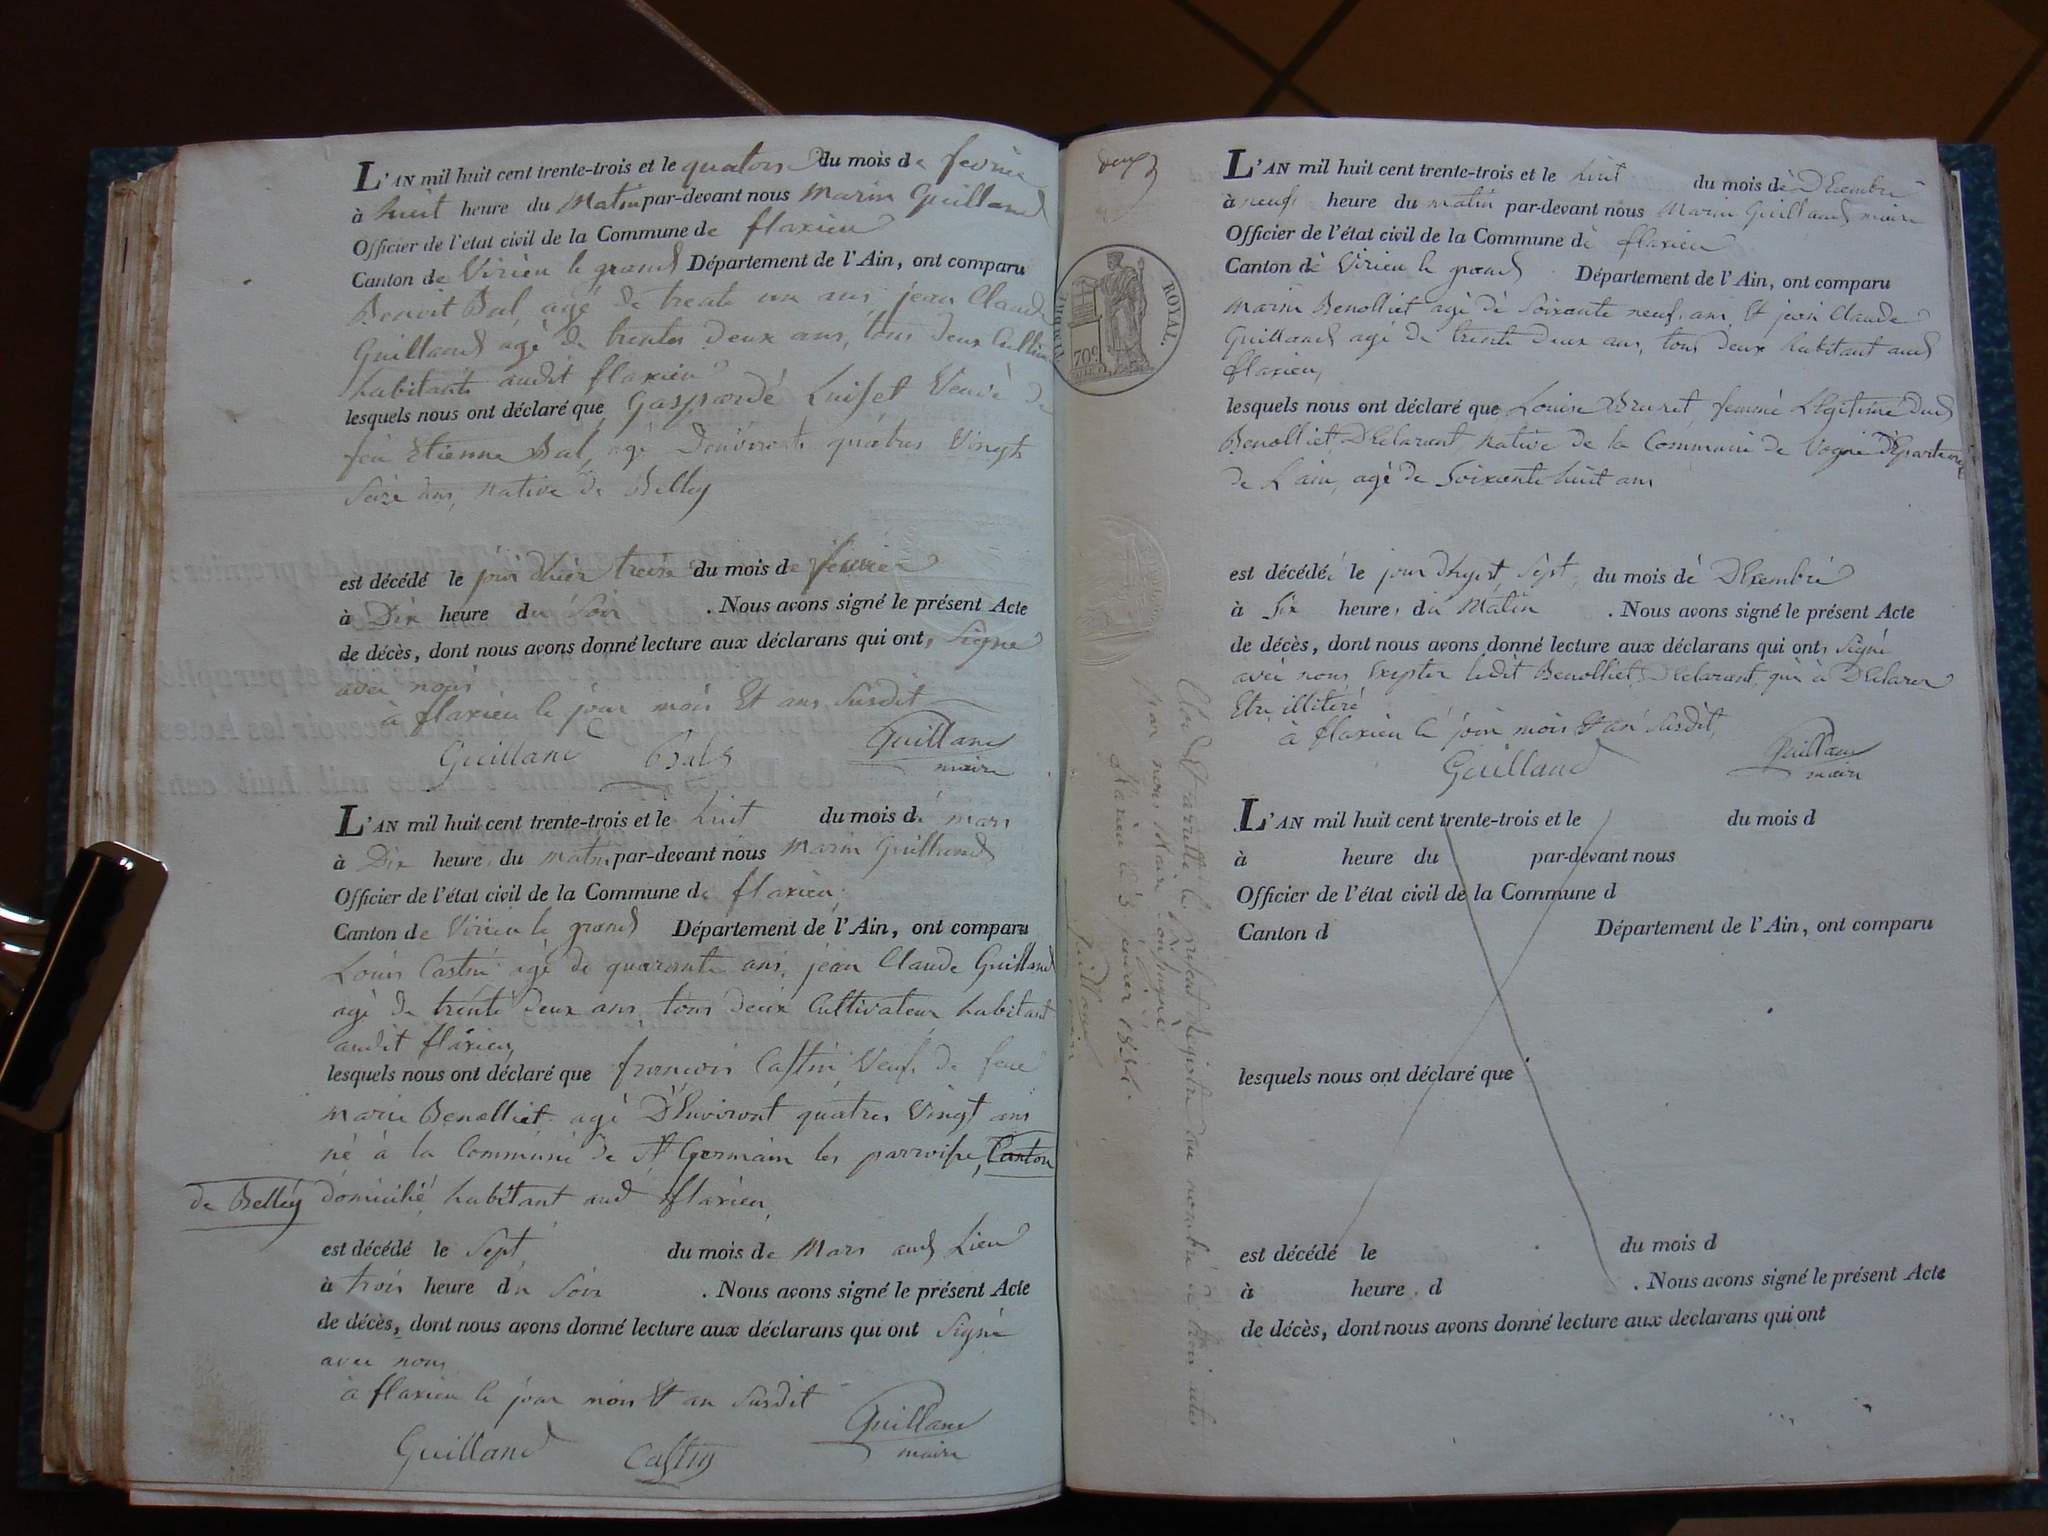 L'AN mil huit cent trente-trois et le quatorze du mois de fevrier
à huit heure du Matin par-devant nous Marin Guilland
Officier de l'état civil de la Commune de flaxieu
Canton de Virieu le grand Département de l'Ain, ont comparu
Benoit Bal, agé de trente un ans, jean Claude
Guilland agé de trentes deux ans, tous deux Cultiv
habitants audit flaxieu
lesquels nous ont déclaré que Gasparde Luiset Veuve de
feu Etienne Bal, agé Denviront quatres Vingts
Seize ans, native de Belley
est décédé le jour dhier treize du mois de fevrier
à Dix heure du Soir . Nous avons signé le présent Acte
de décès, dont nous avons donné lecture aux déclarans qui ont, Signe
avec nous
à flaxieu le jour mois Et ans Susdit
Guilland Bal Guilland
maire
L'AN mil huit cent trente-trois et le huit du mois de mars
à Dix heure du matin par-devant nous Marin Guilland
Officier de l'état civil de la Commune de flaxieu
Canton de Virieu le grand Département de l'Ain, ont comparu
Louis Castin agé de quarante ans, jean Claude Guilland
agé de trente deux ans, tous deux Cultivateur habitant
audit flaxieu
lesquels nous ont déclaré que francois Castin Veuf de feue
marie Benolliet agé D'Environt quatres Vingt ans
né à la Commune de St Germain les parroisse, Canton
de Belley domicilié habitant aud flaxieu,
est décédé le Sept du mois de Mars aud Lieu
à trois heure du Soir . Nous avons signé le présent Acte
de décès, dont nous avons donné lecture aux déclarans qui ont Signé
avec nous
à flaxieu le jour mois Et an Susdit
Guilland Castin Guilland
maire
deux
TIMBRE ROYAL.
70c
L'AN mil huit cent trente-trois et le huit du mois de DEcembre
à neuf heure du matin par-devant nous Marin Guilland maire
Officier de l'état civil de la Commune de flaxieu
Canton de Virieu le grand Département de l'Ain, ont comparu
Marin Benolliet agé de Soixante neuf ans Et jean Claude
Guilland agé de trente deux ans, tous deux habitant aud
flaxieu,
lesquels nous ont déclaré que Louise Brunet femme Légitime dud
Benolliet DEclarant, native de la Commune de Vogne Departement
de L'ain, agé de Soixante huit ans
est décédé le jour dhyert, Sept, du mois de DExembre
à Six heure, du Matin . Nous avons signé le présent Acte
de décès, dont nous avons donné lecture aux déclarans qui ont, Signé
avec nous Exepter ledit Benolliet DEclarant qui à DEclarer
Etre illitéré
à flaxieu le jour mois Et an Susdit,
Guilland Guilland
maire
Clos Et arretté le présent Registre au nombre de trois actes
par nous Maire Soussigné
flaxieu le 3 janvier 1834.
Guilland
maire
L'AN mil huit cent trente-trois et le du mois d
à heure du par-devant nous
Officier de l'état civil de la Commune d
Canton d Département de l'Ain, ont comparu
lesquels nous ont déclaré que
est décédé le du mois d
à heure d . Nous avons signé le présent Acte
de décès, dont nous avons donné lecture aux declarans qui ont